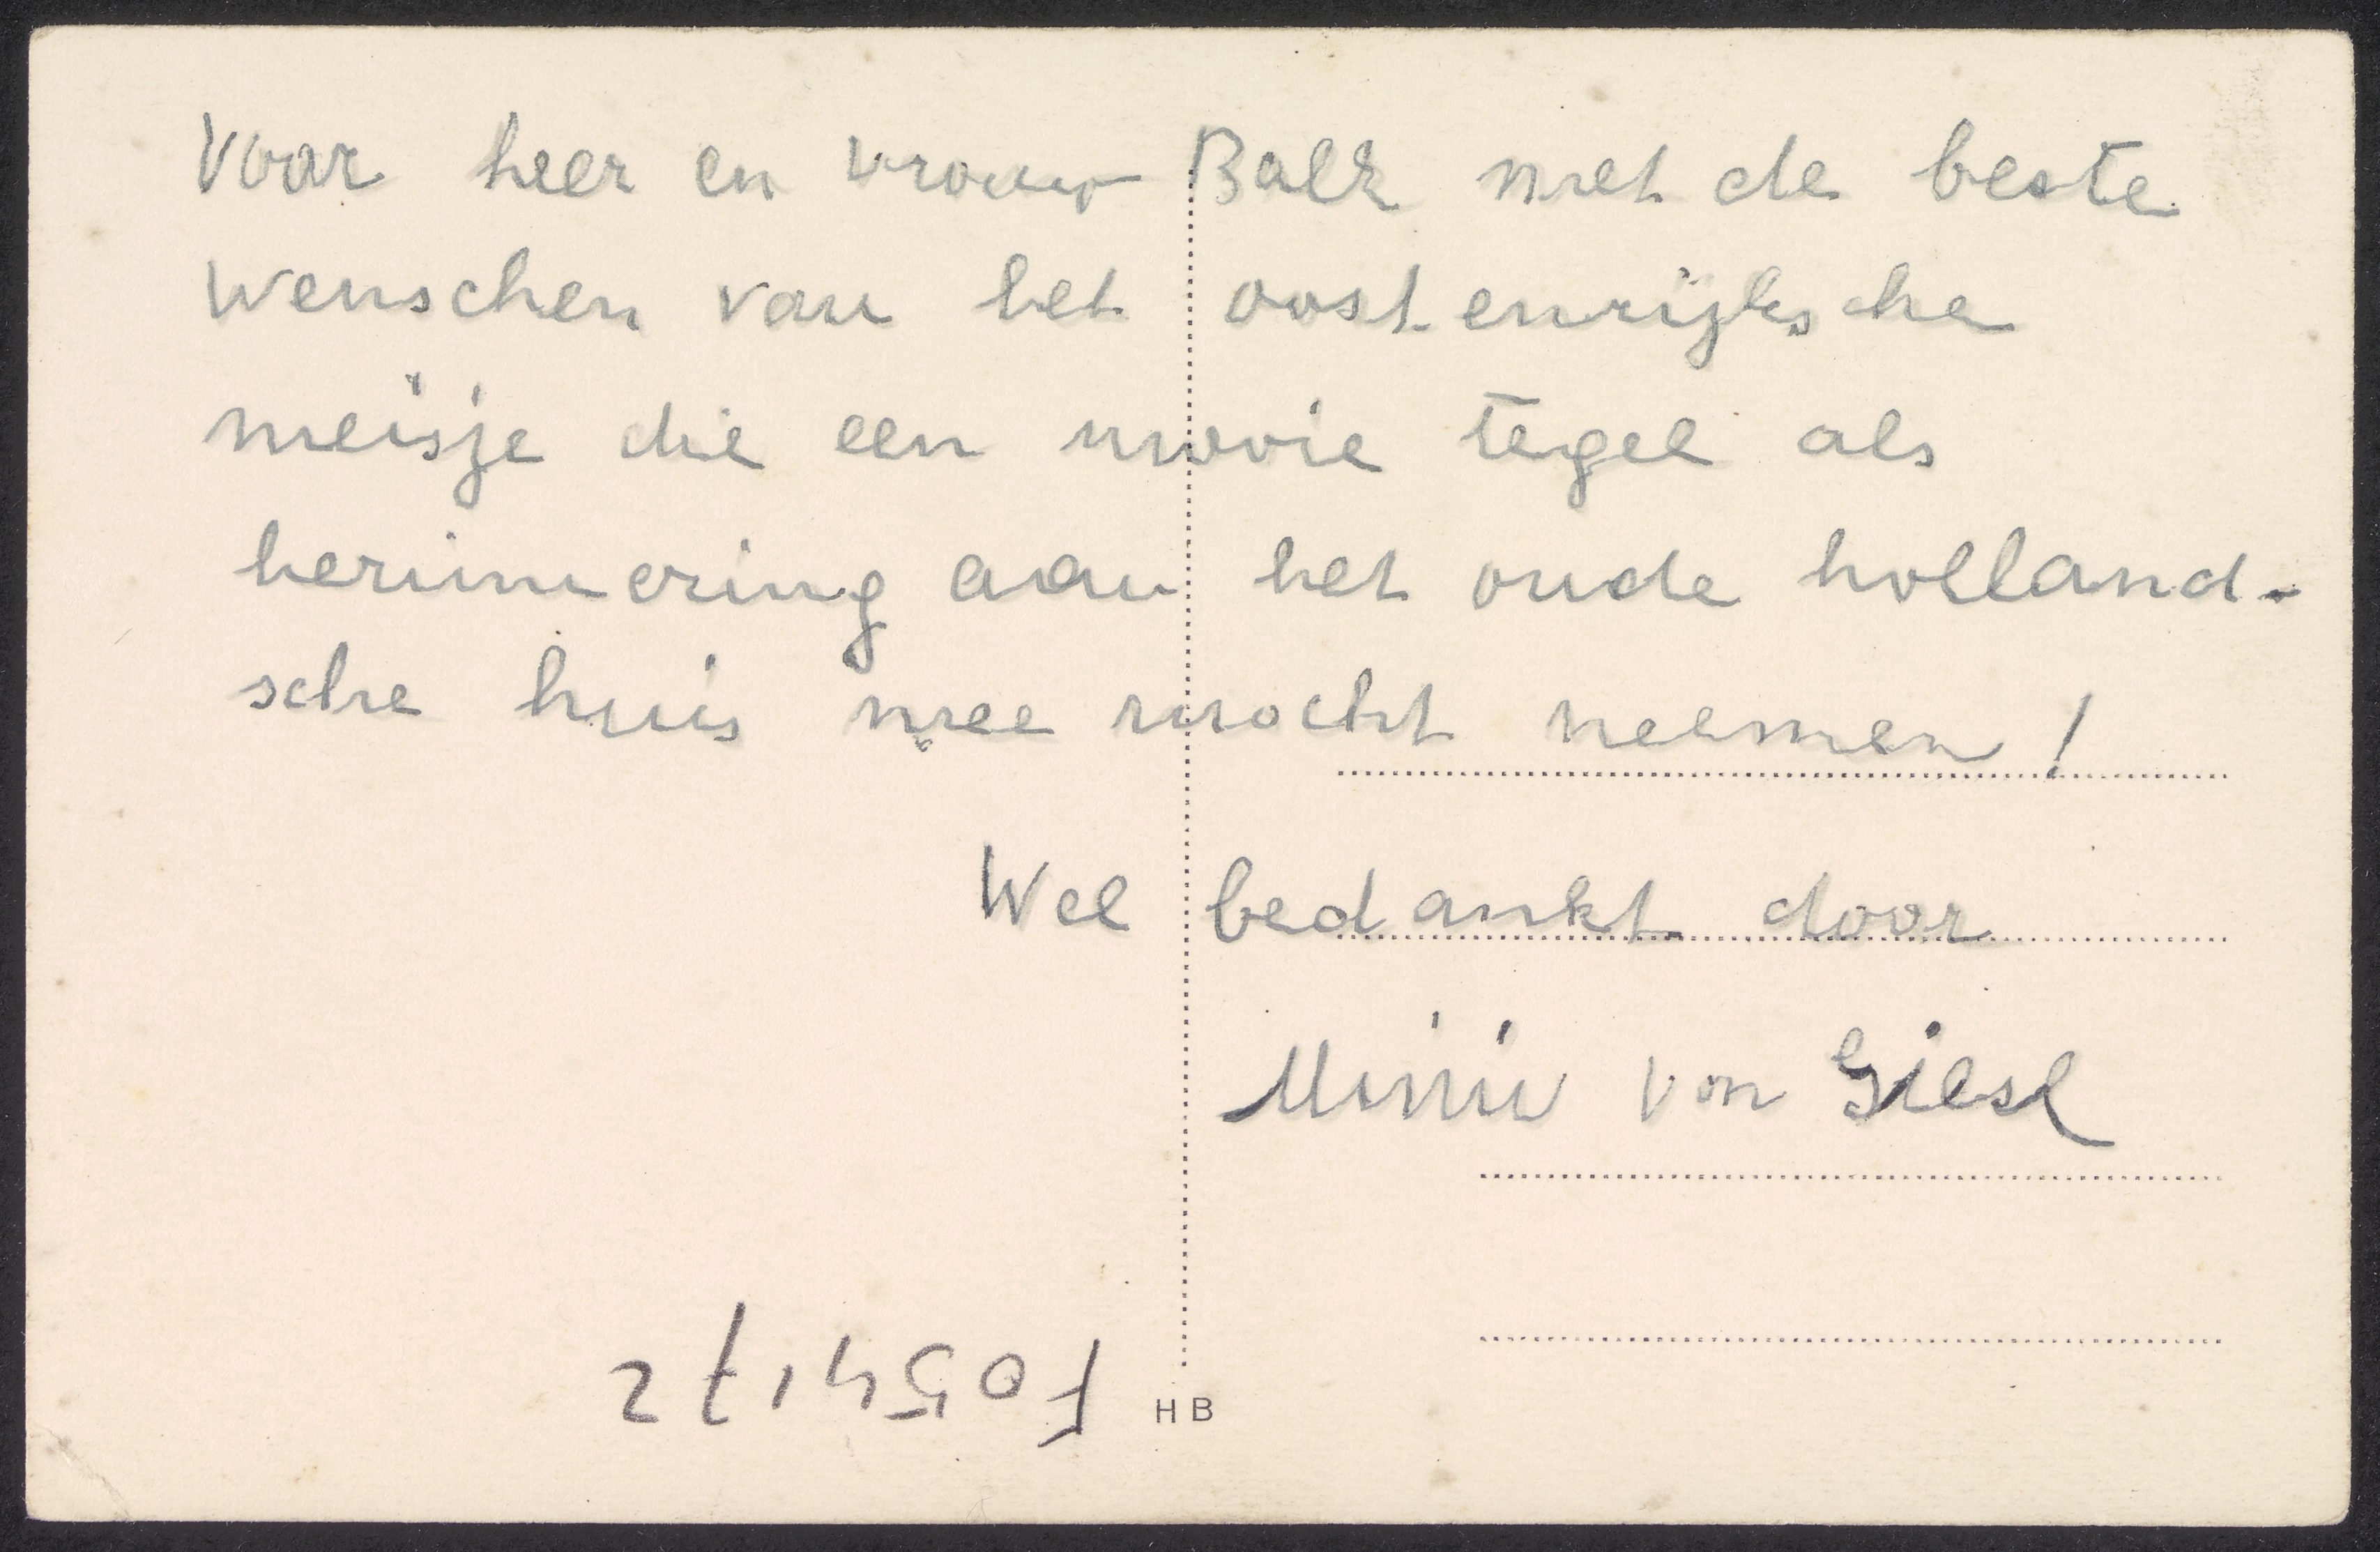 Voor heer en vrouw Balk met de beste
wenschen van het oostenrijksche
meisje die een mooie tegel als
herinnering aan het oude holland-
sche huis mee mocht neemen!
Wel bedankt door
Mimi von Giesl
F054172
HB